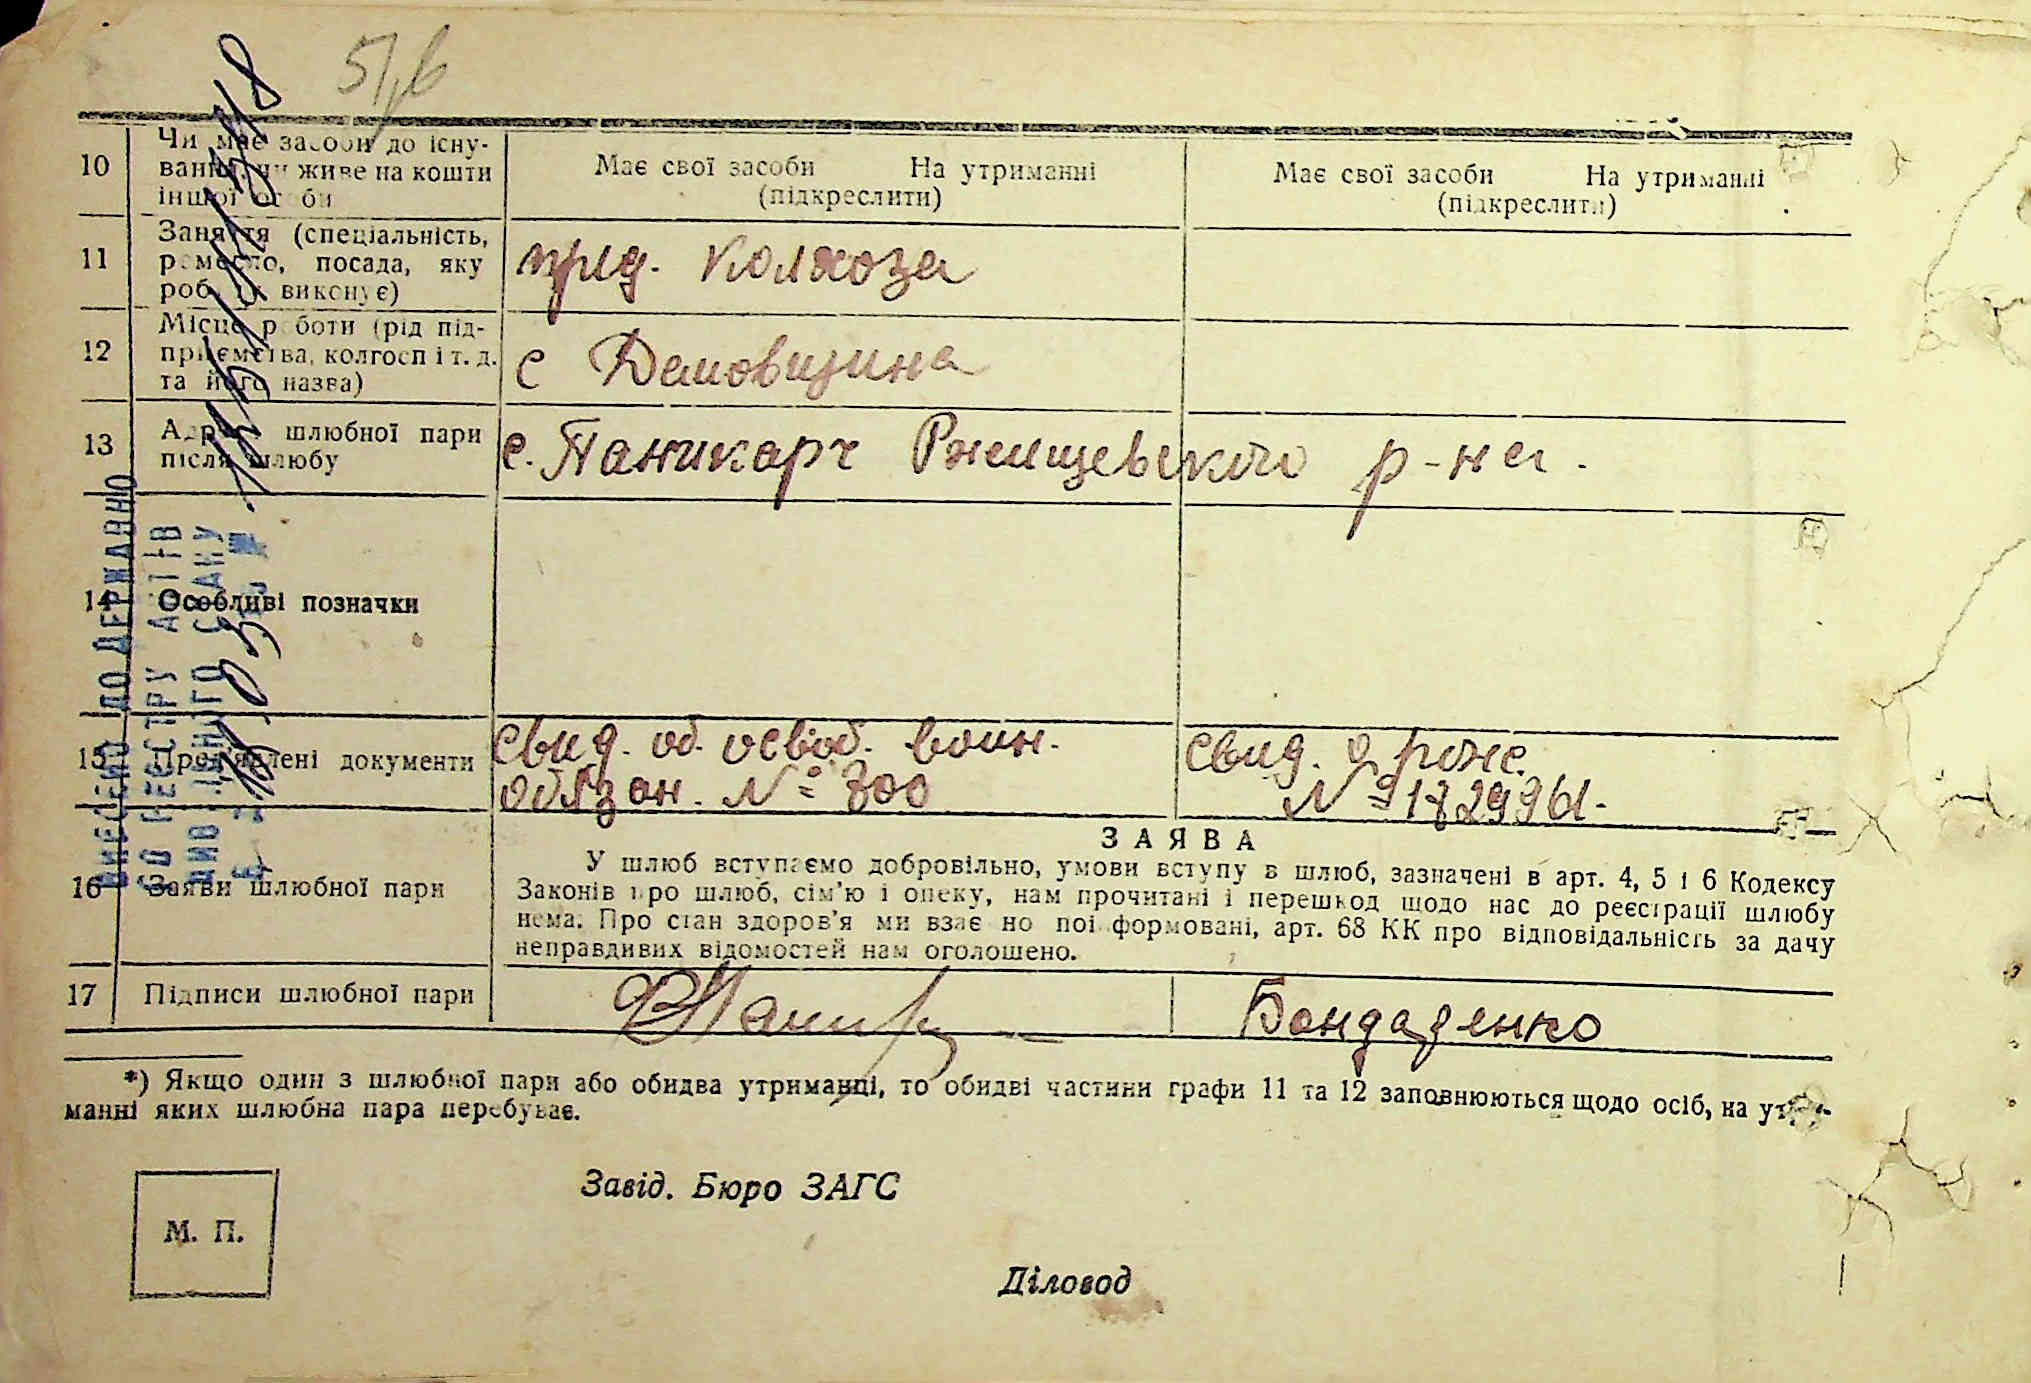 51,6
10
Чи має засоби до існу-
вання, чи живе на кошти
іншої особи
Має свої засоби На утриманні
(підкреслити)
Має свої засоби На утриманні
(підкреслити)
11
Заняття (спеціальність,
ремесло, посада, яку
роб виконує)
пред. колхоза
12
Місце роботи (рід під-
приємства, колгосп і т. д.
та його назва)
с Демовщина
13
Адреса шлюбної пари
після шлюбу
с. Паникарч Ржищевского р-на.
14
Особливі позначки
15
Пред'явлені документи
свид. об освоб. воин.
обязан. № 300
свид. о рож.
16
Заяви шлюбної пари
ЗАЯВА
У шлюб вступаємо добровільно, умови вступу в шлюб, зазначені в арт. 4, 5 і 6 Кодексу
Законів про шлюб, сім'ю і опеку, нам прочитані і перешкод щодо нас до реєстрації шлюбу
нема. Про стан здоров'я ми взаємно поінформовані, арт. 68 КК про відповідальність за дачу
неправдивих відомостей нам оголошено.
17
Підписи шлюбної пари
Бондаренко
*) Якщо один з шлюбної пари або обидва утриманці, то обидві частини графи 11 та 12 заповнюються щодо осіб, на утри-
манні яких шлюбна пара перебуває.
Завід. Бюро ЗАГС
М. П.
Діловод
ВНЕСЕНО ДО ДЕРЖАВНО
ГО РЕЄСТРУ АКТІВ
ЦИВІЛЬНОГО СТАНУ